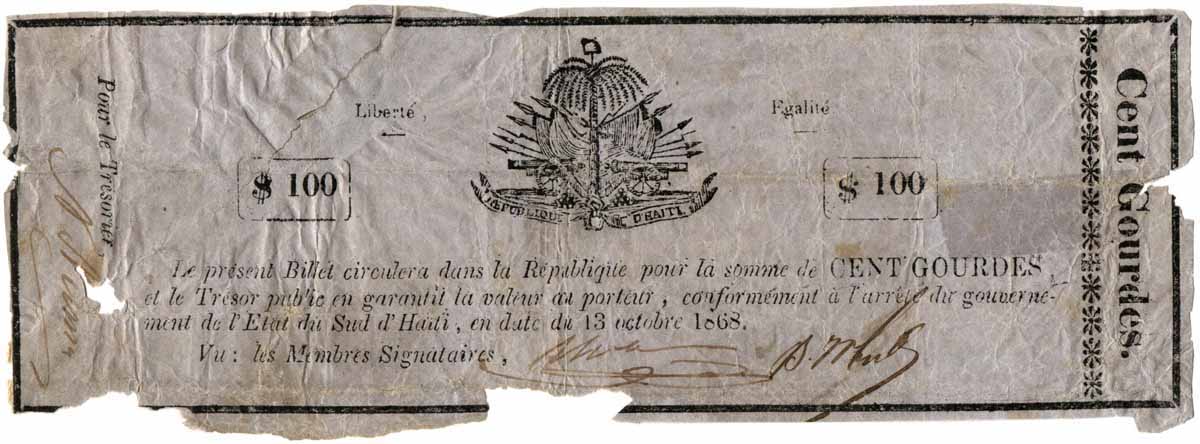 Pour le Trésorier,
Liberté,
Egalité
$ 100
$ 100
RÉPUBLIQUE D'HAITI
Le présent Billet circulera dans la République pour la somme de CENT GOURDES,
et le Trésor public en garantit la valeur au porteur, conformément à l'arrêté du gouverne-
ment de l'Etat du Sud d'Haïti, en date du 13 octobre 1868.
Vu : les Membres Signataires,
Cent Gourdes.